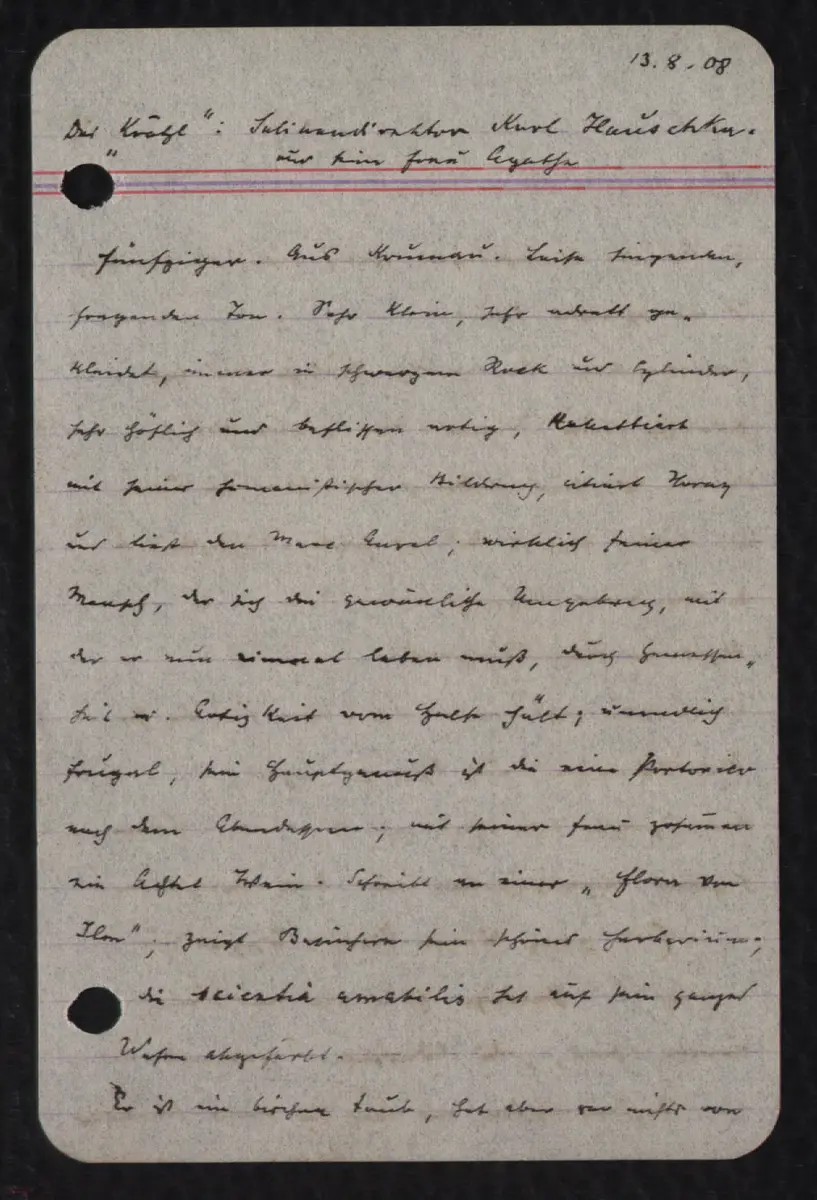 13.8.08
Das „Krätzl“: Salinendirektor Karl Hauschka.
und seine Frau Agathe
Fünfziger. Aus Krumau. Leise singenden,
fragenden Ton. Sehr klein, sehr adrett ge-
kleidet, immer in schwarzem Rock und Cylinder,
sehr höflich und beflissen artig, kokettiert
mit seiner humanistischen Bildung, citiert Horaz
und liest den Marc Aurel; wirklich feiner
Mensch, der sich die gewöhnliche Umgebung, mit
der er nun einmal leben muß, durch Gemessen-
heit u. Artigkeit vom Halse hält; unendlich
frugal, sein Hauptgenuß ist die eine Portorico
nach dem Abendessen; mit seiner Frau zusammen
ein Achtel Wein. Schreibt an einer „Flora von
; zeigt Besuchern sein schönes Herbarium;
die scientia amabilis hat auf sein ganzes
Wesen abgefärbt.
Er ist ein bischen taub, hat aber gar nichts von